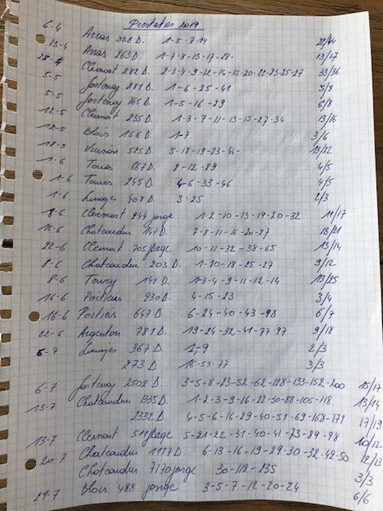 Prestaties 2019
6-4 Arras 338 D. 1-5-7-11
13-4 Arras 263 D 1-7-8-13-17-28- 13/17
28-4 Clermont 282 D. 2-3-4-9-12-14-15-20-22-23-25-27 33/36
5-5 fontenay 281 D. 1-6-25-41 5/8
5-5 fontenay 165 D. 1-5-16-29 6/8
12-5 Clermont 235 D. 1-3-7-11-13-15-27-34 13/16
12-5 Blois 156 D 1-7 3/6
18-5 Vierzon 525 D 5-18-19-23-41- 13/22
1-6 Tours 667 D 8-12-89 4/5
1-6 Tours 245 D 4-6-33-46 4/5
1-6 Limoges 408 D 3-25 2/3
8-6 Clermont 944 jonge 1-2-10-13-19-20-32 11/17
15-6 Chateaudun 141 D. 7-8-11-16-20-27 18/21
22-6 Clermont 705 jonge 10-11-32-38-65 13/14
8-6 Chateaudun 203 D. 1-10-18-25-27 9/12
8-6 Toury 141 D. 1-3-4-9-11-12-14 13/25
16-6 Poitiers 930 D. 4-15-23 3/4
16-6 Poitiers 647 D 6-24-40-43-98 6/7
22-6 Argenton 781 D. 19-24-32-41-77-97 9/18
6-7 Limoges 367 D 1-9 2/3
273 D 16-53-77 3/3
6-7 fontenay 2508 D 3-5-8-23-52-62-128-133-152-200
13-7 Chateaudun 1335 D. 1-2-3-9-16-22-30-88-105-118 13/14
2332 D. 4-5-6-16-29-40-51-69-168-171 17/19
13-7 Clermont 511 jonge 5-21-22-31-40-41-73-89-98 10/12
20-7 Chateaudun 1177 D. 6-13-16-19-29-30-32-42-50 12/13
Chateaudun 7170 jonge 30-112-235 3/3
29-7 Blois 488 jonge 3-5-7-12-20-24 6/6